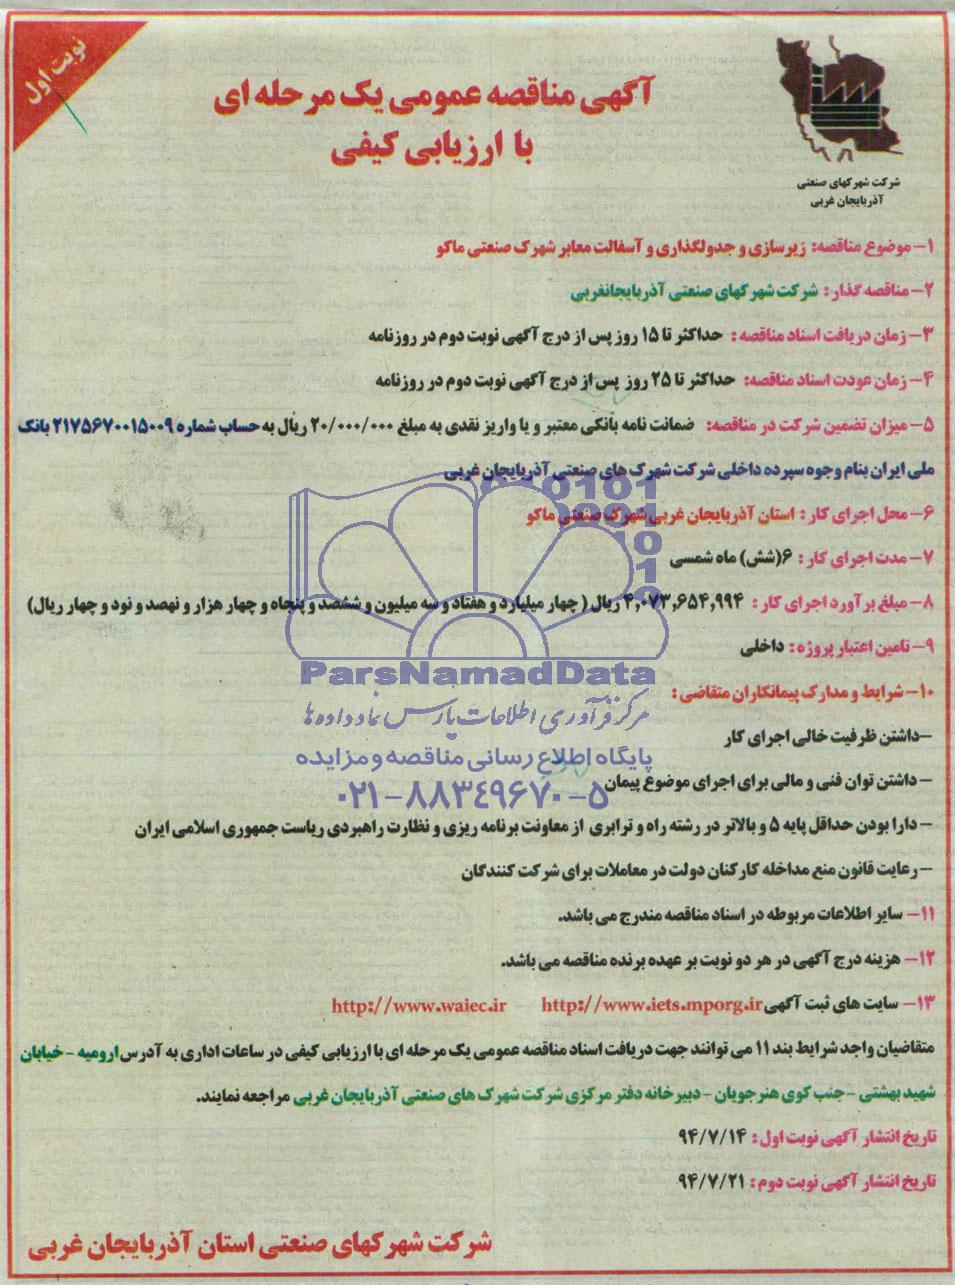 نوبت اول
آگهی مناقصه عمومی یک مرحله ای
با ارزیابی کیفی
شرکت شهرکهای صنعتی
آذربایجان غربی
۱- موضوع مناقصه: زیرسازی و جدولگذاری و آسفالت معابر شهرک صنعتی ماکو
۲- مناقصه گذار: شرکت شهرکهای صنعتی آذربایجانغربی
۳- زمان دریافت اسناد مناقصه: حداکثر تا ۱۵ روز پس از درج آگهی نوبت دوم در روزنامه
۴- زمان عودت اسناد مناقصه: حداکثر تا ۲۵ روز پس از درج آگهی نوبت دوم در روزنامه
۵- میزان تضمین شرکت در مناقصه: ضمانت نامه بانکی معتبر و یا واریز نقدی به مبلغ ۲۰/۰۰۰/۰۰۰ ریال به حساب شماره ۲۱۷۵۶۷۰۰۱۵۰۰۹ بانک
ملی ایران بنام وجوه سپرده داخلی شرکت شهرک های صنعتی آذربایجان غربی
۶- محل اجرای کار: استان آذربایجان غربی شهرک صنعتی ماکو
۷- مدت اجرای کار: ۶(شش) ماه شمسی
۸- مبلغ برآورد اجرای کار: ۴,۰۷۳,۶۵۴,۹۹۴ ریال ( چهار میلیارد و هفتاد و سه میلیون و ششصد و پنجاه و چهار هزار و نهصد و نود و چهار ریال)
۹- تامین اعتبار پروژه: داخلی
ParsNamadData
۱۰- شرایط و مدارک پیمانکاران متقاضی:
مرکز فرآوری اطلاعات پارس نماد داده ها
-داشتن ظرفیت خالی اجرای کار
پایگاه اطلاع رسانی مناقصه و مزایده
- داشتن توان فنی و مالی برای اجرای موضوع پیمان
۰۲۱-۸۸۳۴۹۶۷۰-۵
- دارا بودن حداقل پایه ۵ و بالاتر در رشته راه و ترابری از معاونت برنامه ریزی و نظارت راهبردی ریاست جمهوری اسلامی ایران
- رعایت قانون منع مداخله کارکنان دولت در معاملات برای شرکت کنندگان
۱۱- سایر اطلاعات مربوطه در اسناد مناقصه مندرج می باشد.
۱۲- هزینه درج آگهی در هر دو نوبت بر عهده برنده مناقصه می باشد.
۱۳- سایت های ثبت آگهی http://www.iets.mporg.ir http://www.waiec.ir
متقاضیان واجد شرایط بند ۱۱ می توانند جهت دریافت اسناد مناقصه عمومی یک مرحله ای با ارزیابی کیفی در ساعات اداری به آدرس ارومیه - خیابان
شهید بهشتی - جنب کوی هنرجویان - دبیرخانه دفتر مرکزی شرکت شهرک های صنعتی آذربایجان غربی مراجعه نمایند.
تاریخ انتشار آگهی نوبت اول: ۹۴/۷/۱۴
تاریخ انتشار آگهی نوبت دوم: ۹۴/۷/۲۱
شرکت شهرکهای صنعتی استان آذربایجان غربی